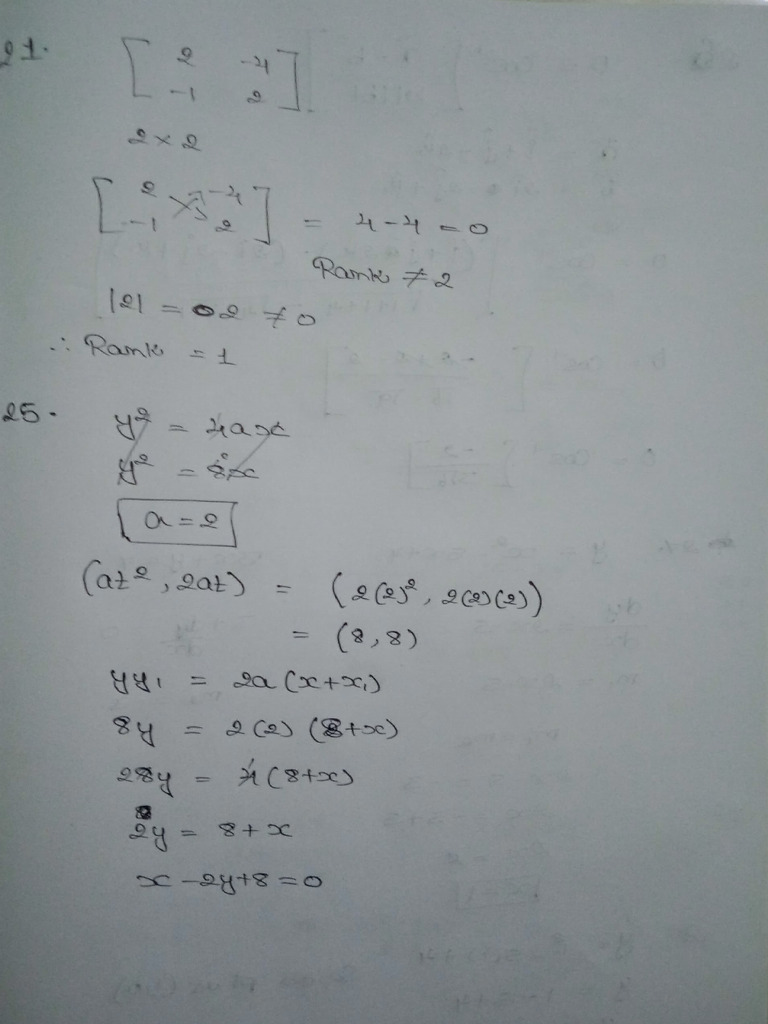 21. [ 2 -4
-1 2 ]
2 × 2
[ 2 -4
-1 2 ] = 4 - 4 = 0
Rank ≠ 2
|2| = 2 ≠ 0
∴ Rank = 1
25. y² = 4ax
y² = 8x
a = 2
(at², 2at) = (2(2)², 2(2)(2))
= (8, 8)
yy₁ = 2a (x+x₁)
8y = 2(2) (8+x)
28y = 4 (8+x)
2y = 8 + x
x - 2y + 8 = 0